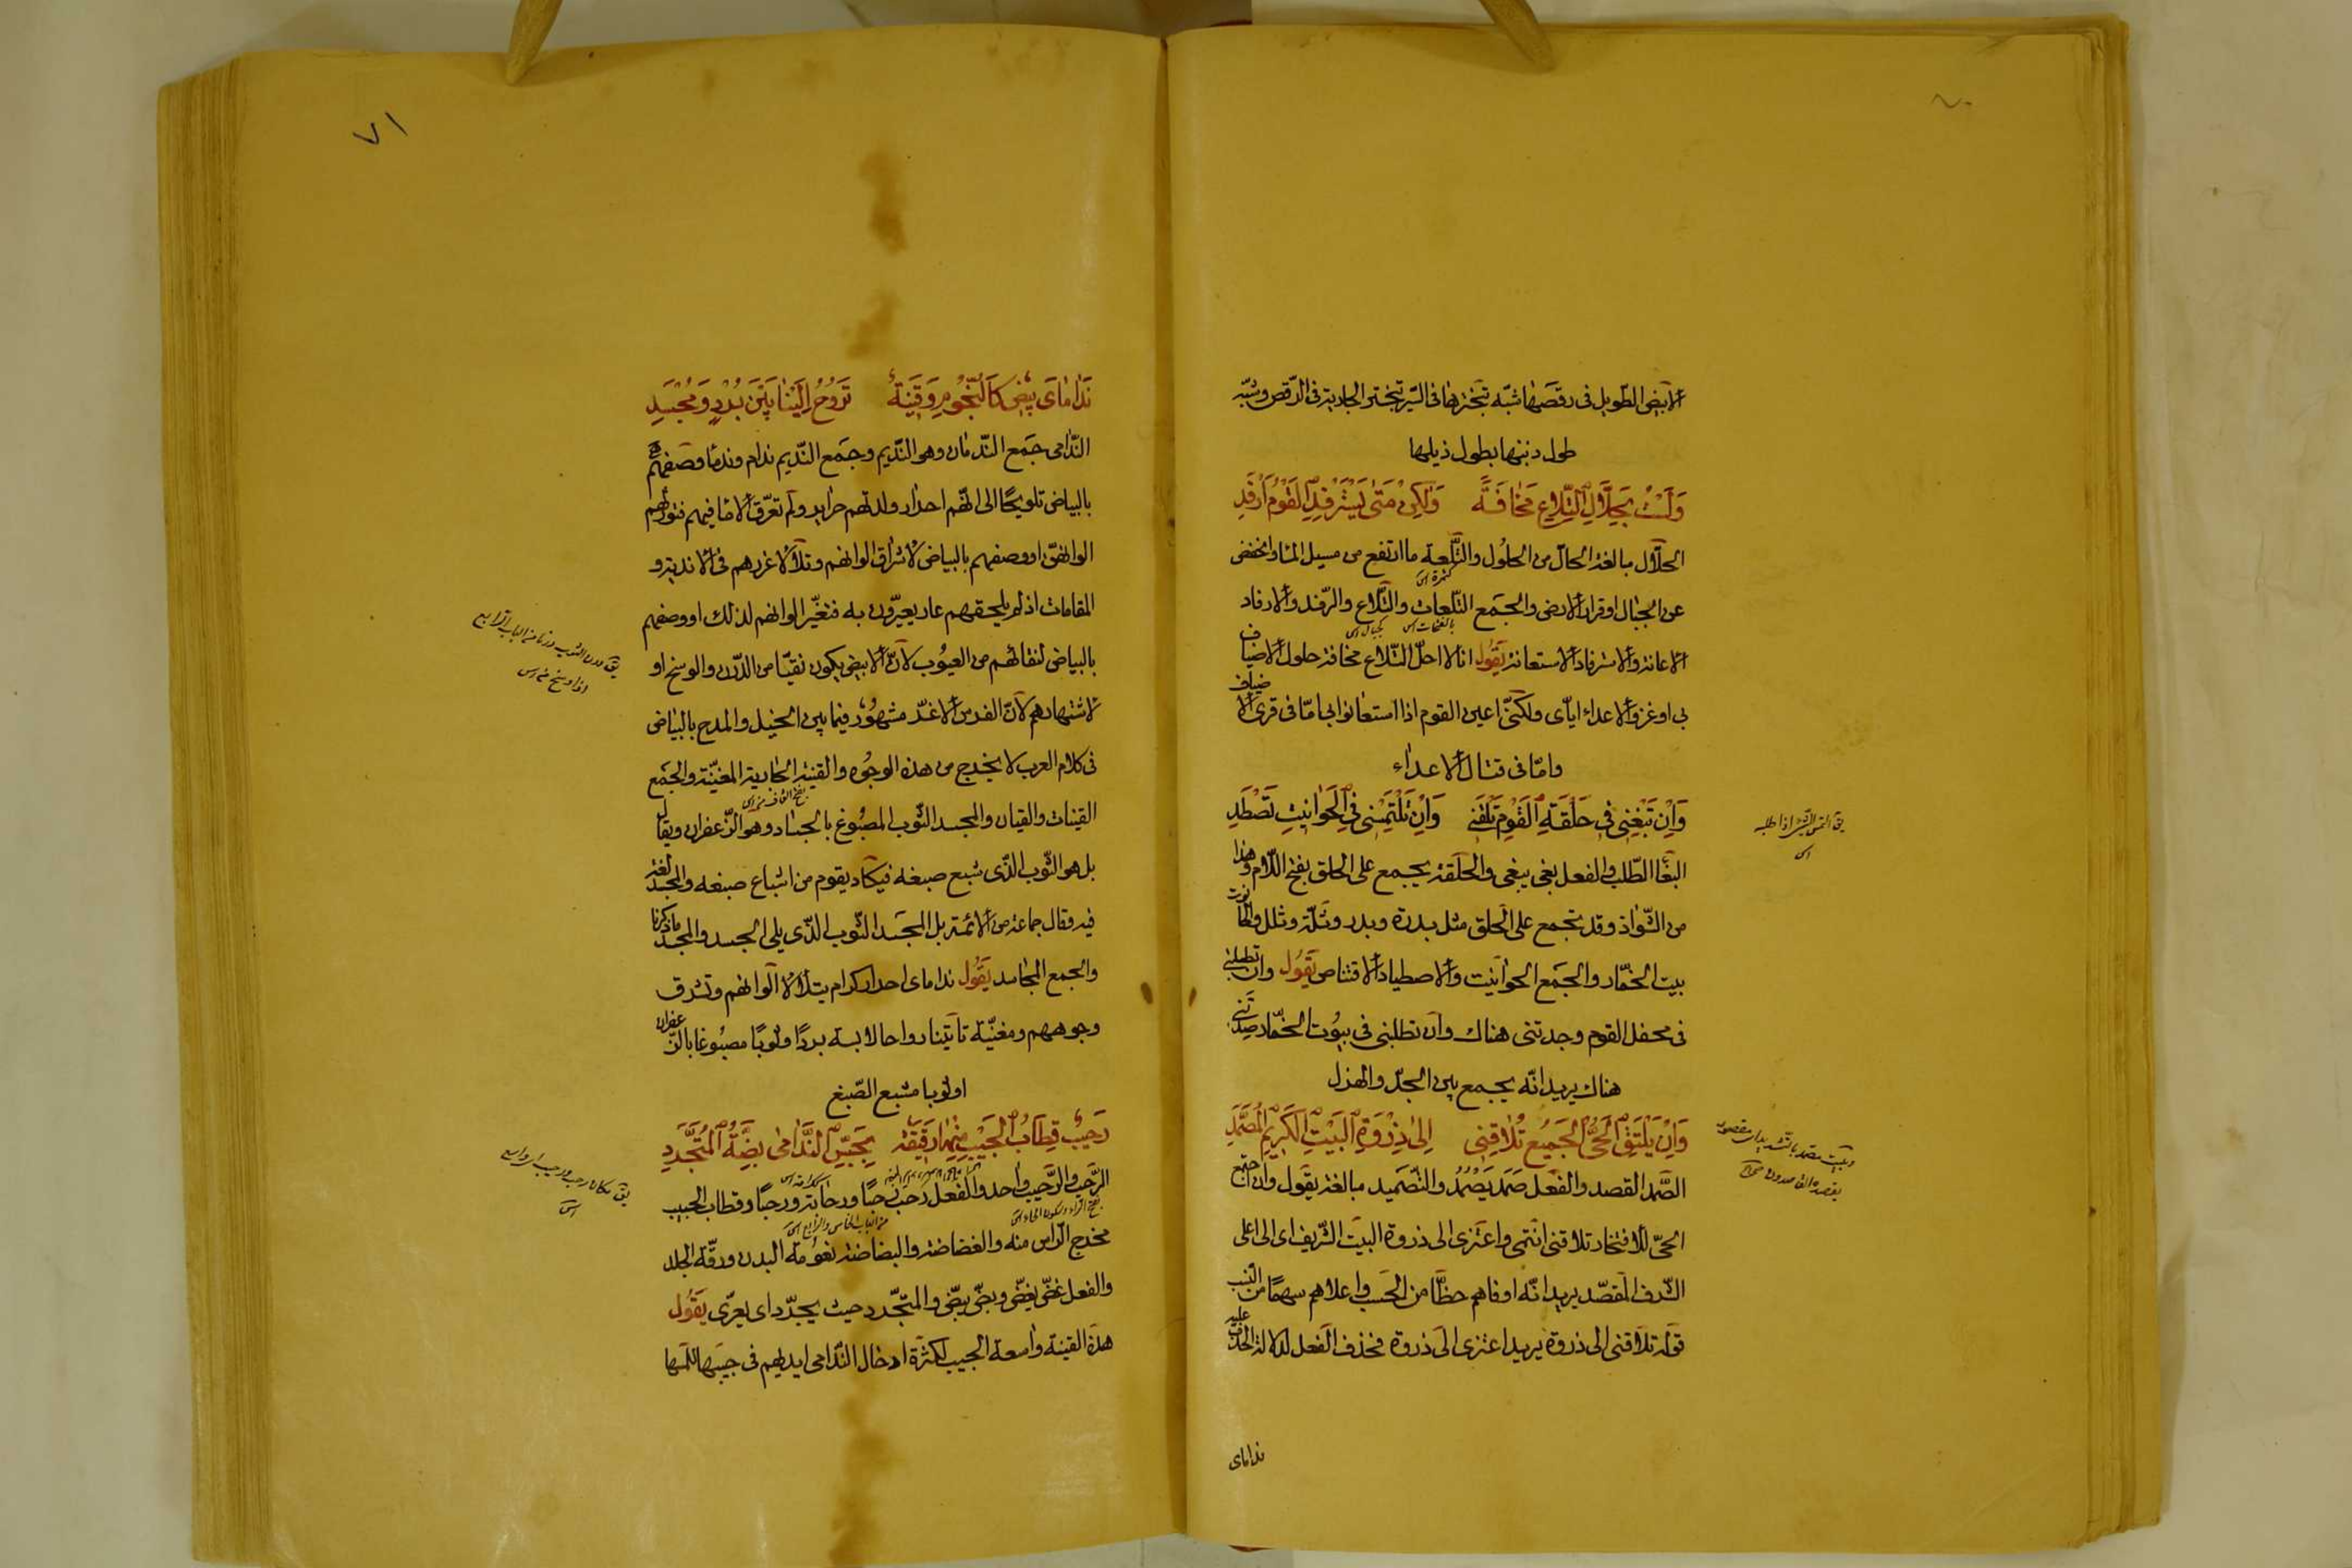 ٧٠
الأبيض الطّويل فى رقصها شبّه تبخترها فى السّير بتبختر الجارية فى الرّقص وشبّه
طول ذنبها بطول ذيلها
وَلَسْتُ بِحَلَّالِ التِّلَاعِ مَخَافَةً وَلٰكِنْ مَتٰى يَسْتَرْفِدِ الْقَوْمُ أَرْفِدِ
الحلّال مبالغة الحالّ من الحلول والتَّلعة ما ارتفع من مسيل الماء وانخفض
عن الجبال او قرار الأرض والجمع التّلعات والتّلاع والرّفد والارفاد
الاعانة والاسترفاد الاستعانة يَقُول انا لا احلّ التّلاع مخافة حلول الاضياف
بى او غزو الاعداء ايّاى ولكنّى اعين القوم اذا استعانوا بى امّا فى قرى الاضياف
وامّا فى قتال الاعداء
وَاِنْ تَبْغِنِى فِى حَلْقَةِ الْقَوْمِ تَلْقَنِى وَاِنْ تَلْتَمِسْنِى فِى الْحَوَانِيتِ تَصْطَدِ
البغاء الطّلب والفعل بغى يبغى والحلقة يجمع على الحلق بفتح اللّام وهذا
من الشّواذ وقد تجمع على الحلق مثل بدرة وبدر وثلّة وثلل والحانوت
بيت الخمّار والجمع الحوانيت والاصطياد الاقتناص يَقُول وان تطلبنى
فى محفل القوم وجدتنى هناك وان تطلبنى فى بيوت الخمّار صدتنى
هناك يريد انّه يجمع بين الجدّ والهزل
وَاِنْ يَلْتَقِ الْحَىُّ الْجَمِيعُ تُلَاقِنِى اِلٰى ذِرْوَةِ الْبَيْتِ الْكَرِيمِ الْمُصَمَّدِ
الصَّمْد القصد والفعل صَمَد يَصْمُدُ والتّصميد مبالغة يَقُول وان اجتمع
الحىّ للافتخار تلاقنى انتمى واعتزى الى ذروة البيت الشّريف اى الى اعلى
الشّرف المقصّد يريد انّه اوفاهم حظّا من الحسب واعلاهم سهمًا من النّسب
قوله تلاقنى الى ذروة يريد اعتزى الى ذروة فحذف الفعل لدلالة الحرف عليه
ندامای
٧١
نَدَامَاىَ بِيضٌ كَالنُّجُومِ وَقَيْنَةٌ تَرُوحُ اِلَيْنَا بَيْنَ بُرْدٍ وَمُجْسَدِ
النّدامى جمع النّدمان وهو النّديم وجمع النّديم ندام وندماء وصفهم
بالبياض تلويحًا الى انّهم احرار ولدتهم حراير ولم تعرّق الاماء فيهم فتورثهم
الوانهنّ او وصفهم بالبياض لاشراق الوانهم وتلألأ غررهم فى الاندية و
المقامات اذ لم يلحقهم عار يعيّرون به فتغيّر الوانهم لذلك او وصفهم
بالبياض لنقائهم من العيوب لانّ الابيض يكون نقيّا من الدّرن والوسخ او
لاشتهارهم لانّ الفرس الاغرّ مشهور فيما بين الخيل والمدح بالبياض
فى كلام العرب لا يخرج من هذه الوجوه والقينة الجارية المغنّية والجمع
القينات والقيان والمجسد الثّوب المصبوغ بالجساد وهو الزّعفران ويقال
بل هو الثّوب الّذى شبع صبغه فيكاد يقوم من اشباع صبغه والمجسد لغة
فيه وقال جماعة من الائمّة بل المجسد الثّوب الّذى يلى الجسد والمجسد ما ذكرنا
والجمع المجاسد يَقُول نداماى احرار كرام يتلألأ الوانهم وتشرق
وجوههم ومغنّية تأتينا رواحا لابسة بردًا وثوبًا مصبوغا بالزّعفران
او ثوبا مشبع الصّبغ
رَحِيبٌ قِطَابُ الْجَيْبِ مِنْهَا رَقِيقَةٌ بِجَسِّ النَّدَامٰى بَضَّةُ الْمُتَجَرَّدِ
الرَّحب والرَّحيب واحد والفعل رحب رحبًا ورحابة ورحبًا وقطاب الجيب
مخرج الرّأس منه والغضاضة والبضاضة نعومة البدن ورقّة الجلد
والفعل غضّ يغضّ وبضّ يبضّ والمتجرّد حيث يجرّد اى يعرّى يَقُول
هذه القينة واسعة الجيب لكثرة ادخال النّدامى ايديهم فى جيبها للمسها